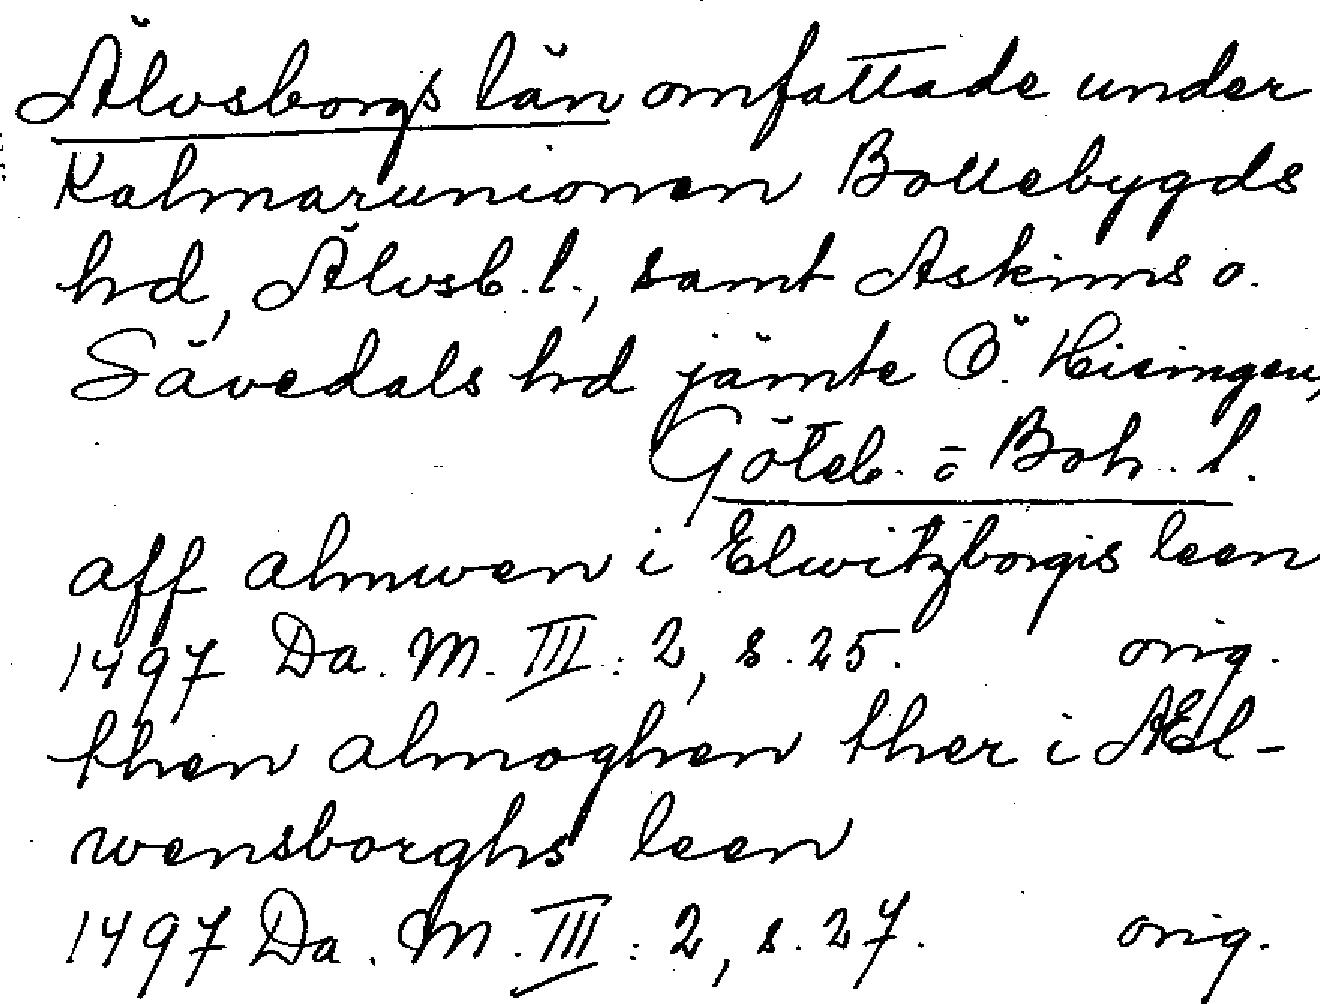 Älvsborgs län omfattade under
Kalmarunionen Bollebygds
hd, Älvsb. l., samt Askims o.
Sävedals hd jämte Ö. Hisingen,
Göteb. o Boh. l.
aff almwen i Elwitzborgis leen
1497 Da. M. III: 2, s. 25. orig.
then almoghen ther i Æl-
wensborghs leen
1497 Da. M. III: 2, s. 27. orig.